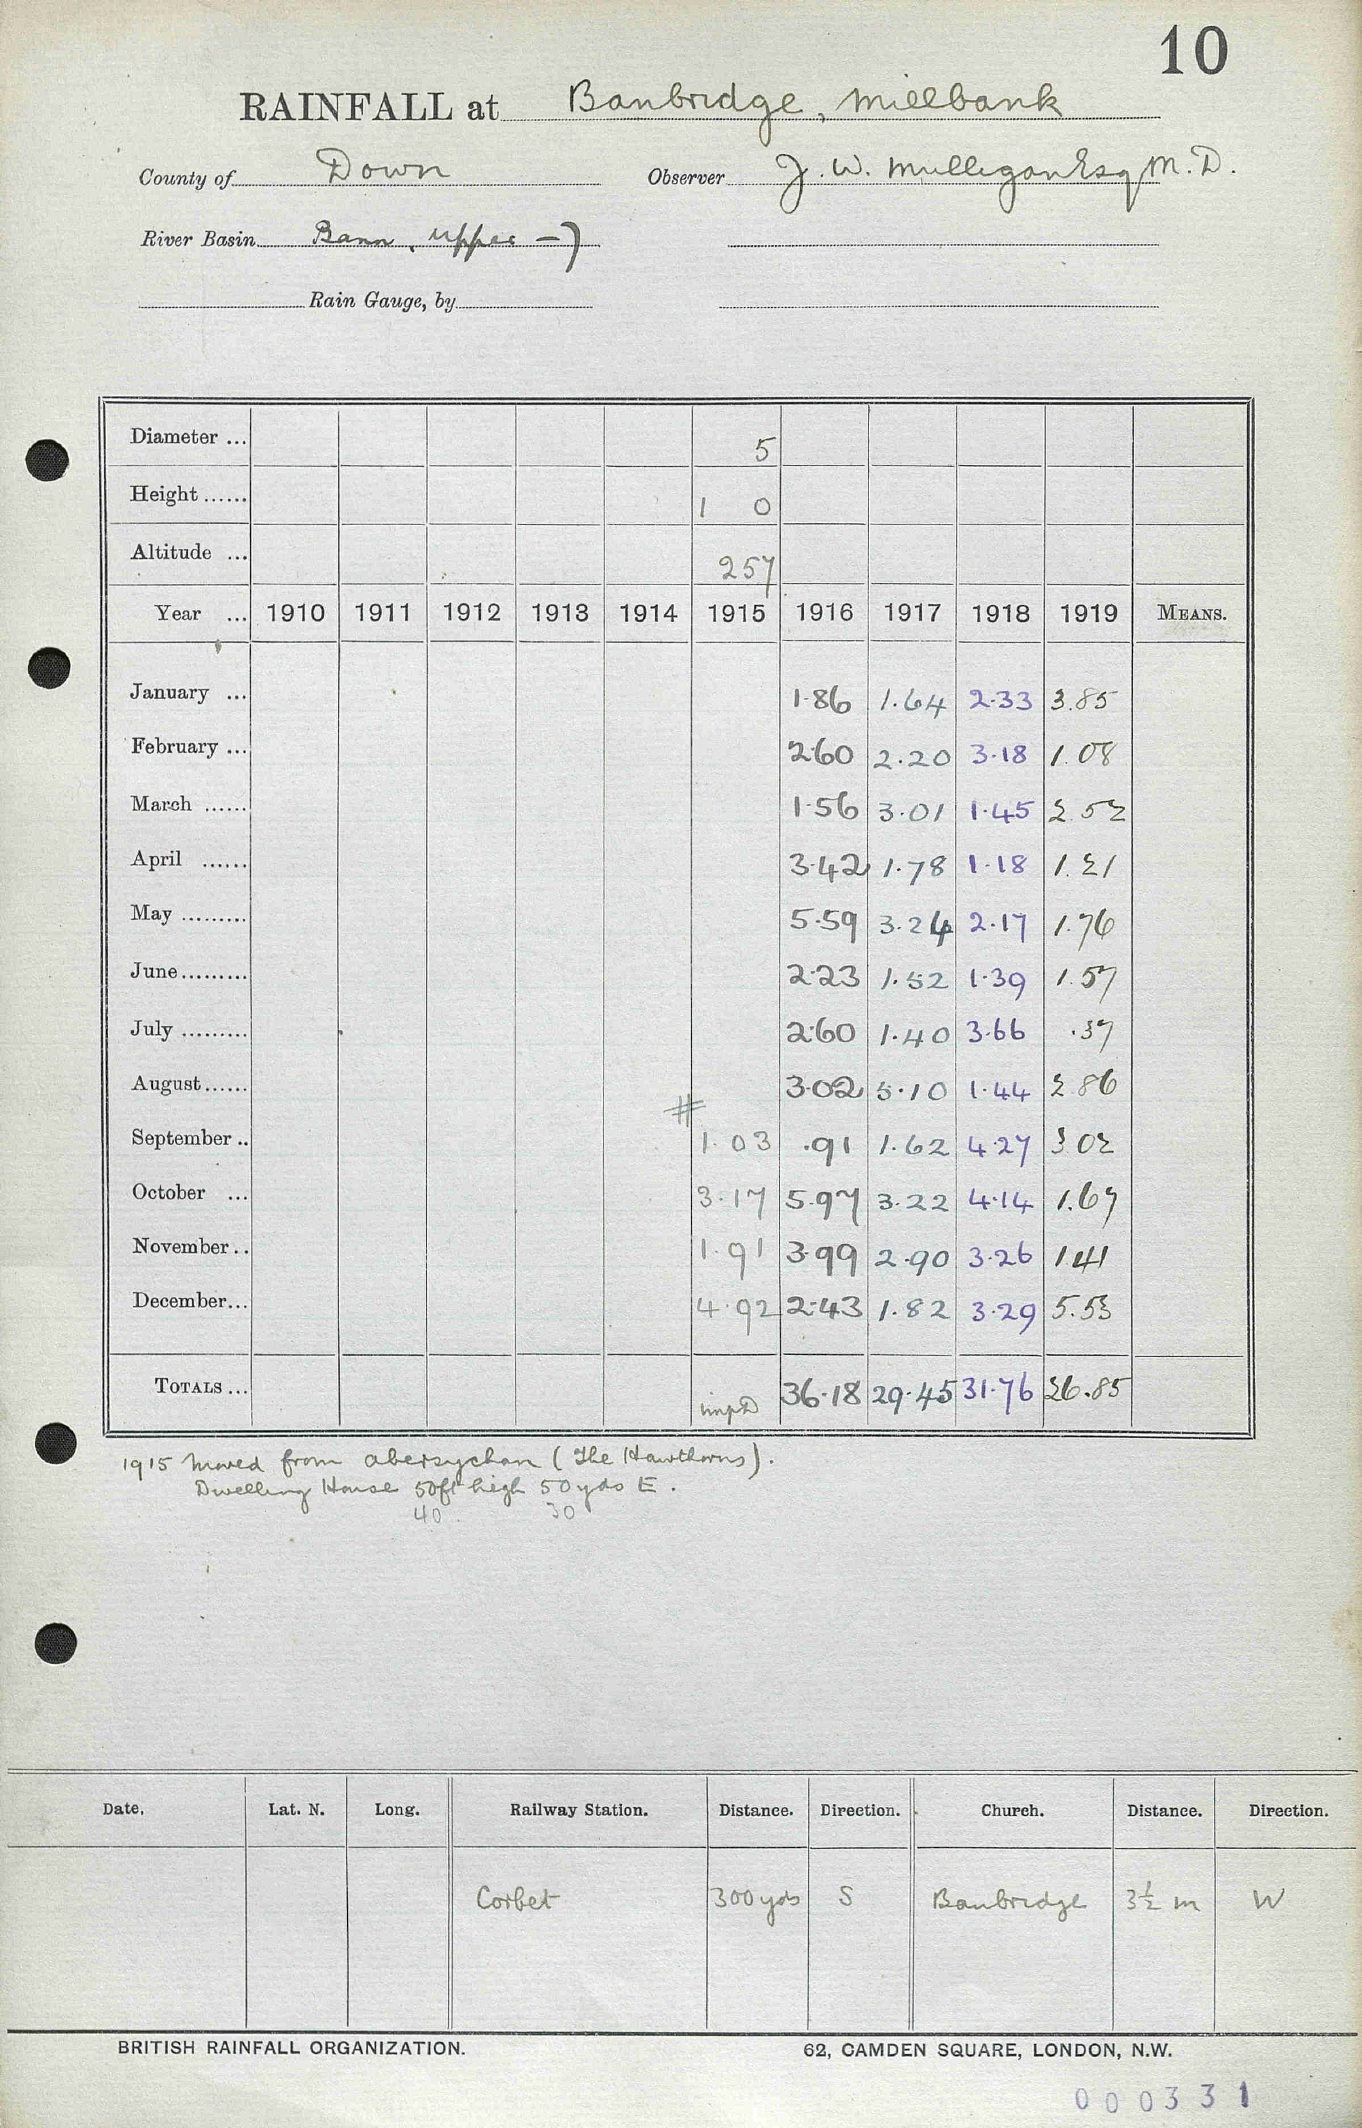 10
RAINFALL at Banbridge, Millbank
County of Down Observer J. W. Mulligan Esq M.D.
River Basin Bann, Upper —)
Rain Gauge, by
Diameter ... 5
Height ...... 1 0
Altitude ... 257
Year ... 1910 1911 1912 1913 1914 1915 1916 1917 1918 1919 MEANS.
January ... 1.86 1.64 2.33 3.85
February ... 2.60 2.20 3.18 1.08
March ...... 1.56 3.01 1.45 2.52
April ...... 3.42 1.78 1.18 1.21
May ......... 5.59 3.24 2.17 1.76
June ......... 2.23 1.52 1.39 1.57
July ......... 2.60 1.40 3.66 .37
August ...... 3.02 5.10 1.44 2.86
September .. # 1.03 .91 1.62 4.27 3.02
October ... 3.17 5.97 3.22 4.14 1.67
November .. 1.91 3.99 2.90 3.26 1.41
December... 4.92 2.43 1.82 3.29 5.53
TOTALS ... impD 36.18 29.45 31.76 26.85
1915 Moved from Abersychan (The Hawthorns).
Dwelling House 50ft high 50 yds E.
40 30
Date. Lat. N. Long. Railway Station. Distance. Direction. Church. Distance. Direction.
Corbet 300 yds S Banbridge 3½ m W
BRITISH RAINFALL ORGANIZATION. 62, CAMDEN SQUARE, LONDON, N.W.
000331